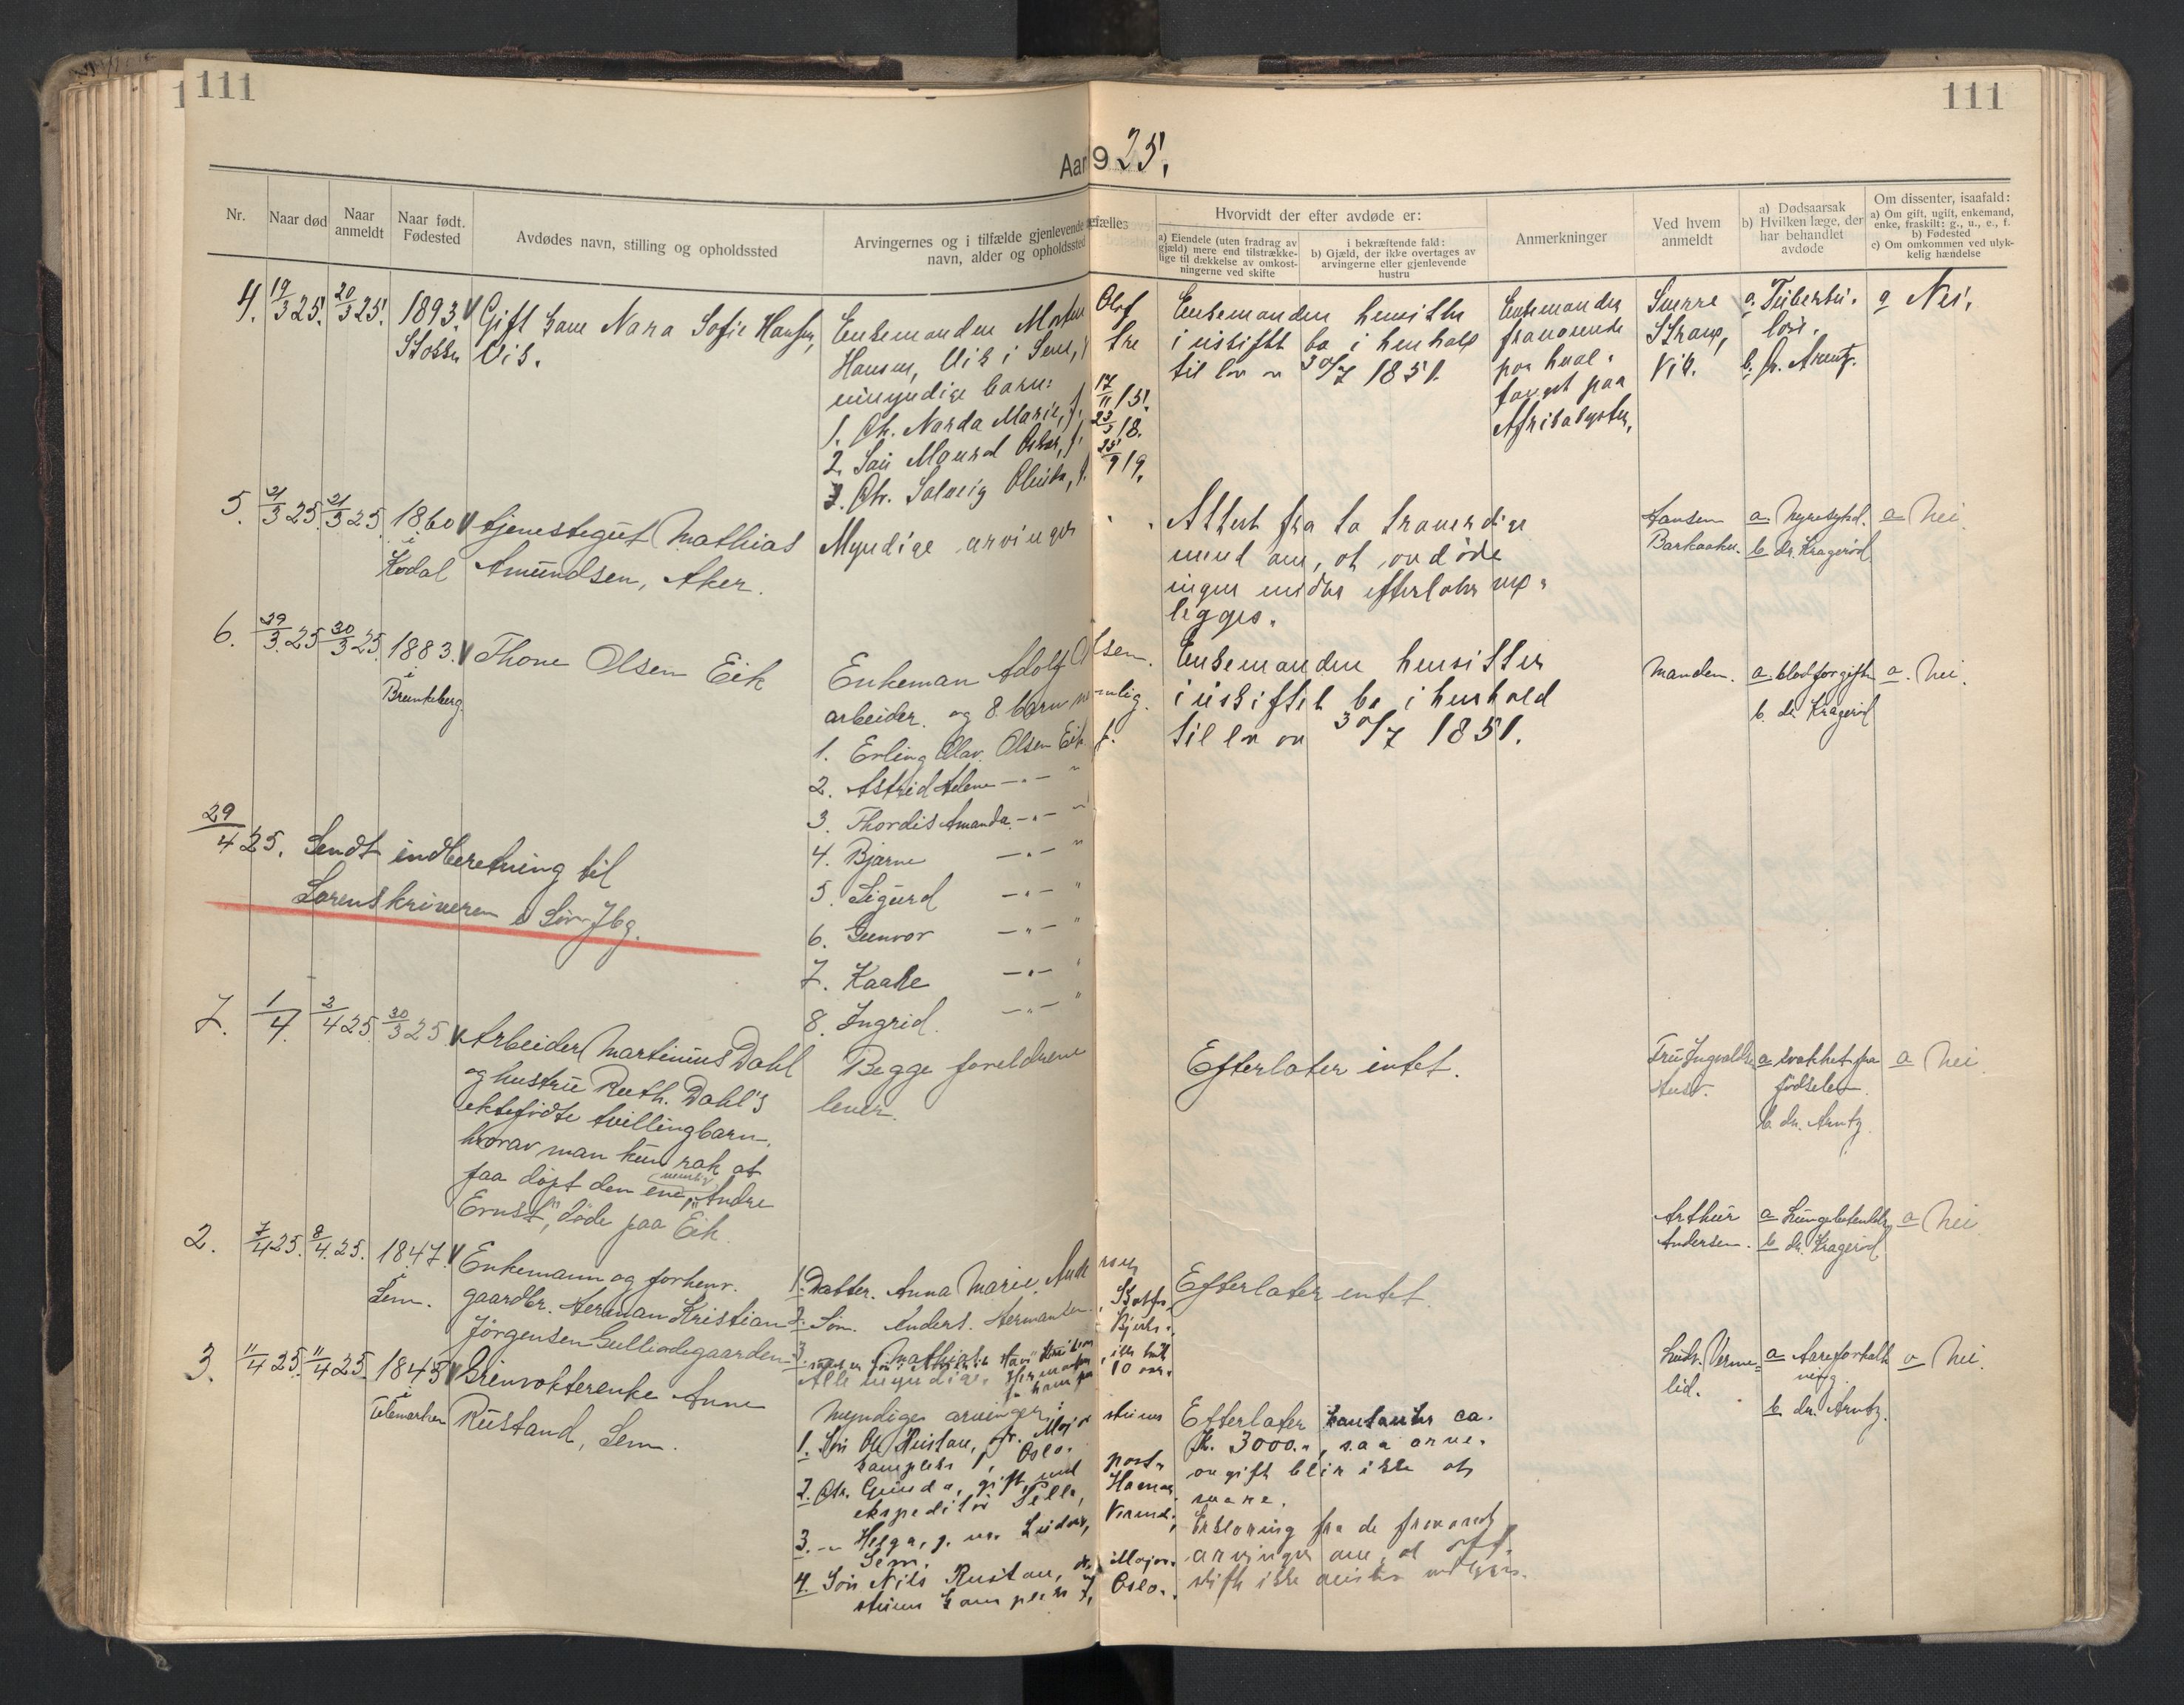 111
111
Aar 1925.
Nr.
Naar død
Naar anmeldt
Naar født. Fødested
Avdødes navn, stilling og opholdssted
Arvingernes og i tilfælde gjenlevende
navn, alder og opholdssted
efælles
Hvorvidt der efter avdøde er:
a) Eiendele (uten fradrag av
gjæld) mere end tilstrække-
lige til dækkelse av omkost-
ningerne ved skifte
i bekræftende fald:
b) Gjæld, der ikke overtages av
arvingerne eller gjenlevende
hustru
Anmerkninger
Ved hvem
anmeldt
a) Dødsaarsak
b) Hvilken læge, der
har behandlet
avdøde
Om dissenter, isaafald:
a) Om gift, ugift, enkemand,
enke, fraskilt: g., u., e., f.
b) Fødested
c) Om omkommen ved ulyk-
kelig hændelse
4. 19/3 25. 20/3 25. 1893.
Stokke
Gift kone Nara Sofie Hansen,
Vik.
Enkemanden
Hansen, Vik i Sem,
umyndige barn:
1. Dtr. Narda Marie, f. 17/11 15.
2. Søn Maurd Oskar, f. 23/3 18.
3. Dtr. Solveig f. 25/9 19.
Enkemanden hensitter
i uskiftet bo i henhold
til lov av 30/7 1851.
Enkemanden
fraværende
paa hval-
fangst paa
Afrikakysten.
Sverre
Strang,
Vik.
a. Tuberku-
lose.
b. dr. Arentz.
a Nei.
5. 21/3 25. 21/3 25. 1860
i
Kodal
tjenestegut Mathias
Amundsen, Aker.
Myndige arvinger
Attest fra to troverdige
mend om, at avdøde
ingen midler efterlater ved-
legges.
Hansen
Barkaaker.
a. nyresykd.
b. dr. Kragerød.
a Nei.
6. 29/3 25 30/3 25. 1883.
i
Brunkeberg
Thone Olsen Eik
Enkeman Adolf Olsen.
arbeider. og 8 barn nemlig.
1. Erling Olav. Olsen Eik f.
2. Astrid Helene -"- "
3. Thordis Amanda. -"- "
4. Bjarne -"- "
5. Sigurd -"- "
6. Gunvor -"- "
7. Kaare -"- "
8. Ingrid. -"- "
Enkemanden hensitter
i uskiftet bo i henhold
til lov av 30/7 1851.
Manden.
a. blodforgiftn
b. dr Kragerød
a. Nei.
29/4 25. Sendt indberetning til
Sorenskriveren i Søn Jbg.
7. 1/4. 2/4 25. 30/3 25.
Arbeider Martinius Dahl
og hustru Ruth. Dahl's
ektefødte tvillingbarn,
hvorav man kun rak at
faa døpt den ene, (nemlig) "Andre
Ernst", døde paa Eik.
Begge foreldrene
lever.
Efterlater intet.
Fru Ingvaldsen
Aust.
a svakhet fra
fødselen
b. dr. Arntz.
a Nei
2. 7/4 25. 8/4. 25. 1847.
i
Sem.
Enkemann og forhenv.
gaardbr. Herman Kristian
Jørgensen Gulliodegaarden.
1. Datter. Anna Marie.
2. Søn. Anders. Hermansen.
3. Mathias
Alle myndige.
10 aar.
Efterlater intet.
Arthur
Andersen.
a Lungebetendelse
b dr. Kragerød.
a Nei
3. 11/4 25. 11/4 25. 1845
i
Telemarken
Grinvokterenke Anne
Rustand, Sem.
Myndige arvinger:
1. Søn Ole Rustan, Major
stuens
kampleks 1, Oslo.
2. Dtr. Gunda, gift med post-
ekspeditør Hamar.
3. -"- Helga, g. m.
Sem.
4. Søn Nils Rustan, Major-
stuens kompleks 7, Oslo.
Efterlater kontanter ca.
Kr. 3000.-, saa arve-
avgift blir ikke at
svare.
Erklæring fra de
arvinger om, at off.
skifte ikke
Ludv. Verme-
lid.
a Aareforkalk
ning
b. dr. Arntz.
a Nei.